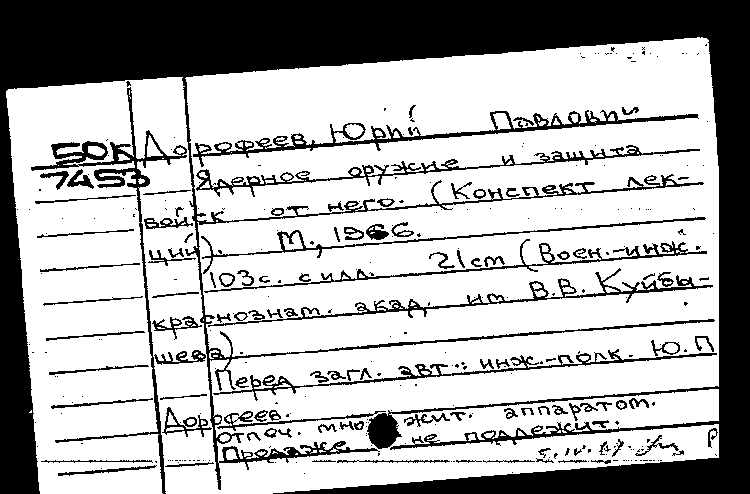 50К Дорофеев, Юрий Павлович
7453 Ядерное оружие и защита
войск от него. (Конспект лек-
ций). М., 1966.
103с. с илл. 21cm (Воен.-инж.
краснознам. акад. им В.В. Куйбы-
шева).
Перед загл. авт.: инж.-полк. Ю.П
Дорофеев.
отпеч. множит. аппаратом.
Продаже не подлежит.
Р